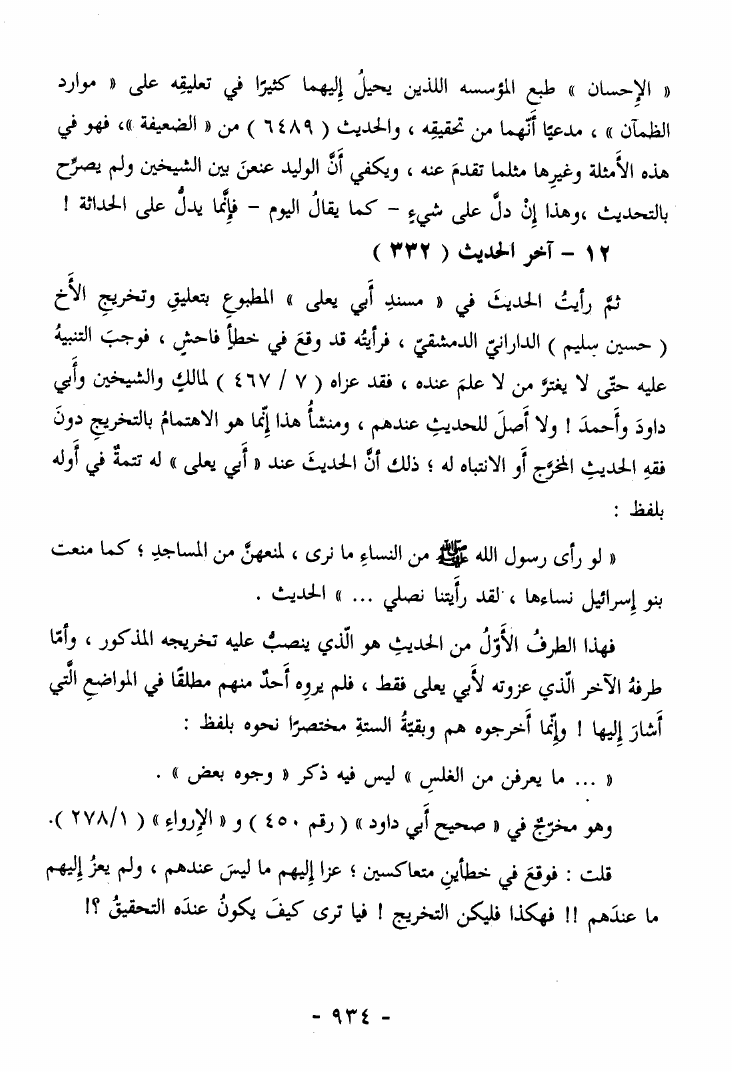 « الإحسان » طبع المؤسسه اللذين يحيلُ إليهما كثيرًا في تعليقِه على « موارد
الظمآن » ، مدعيًا أنّهما من تحقيقِه ، والحديث ( ٦٤٨٩ ) من « الضعيفة »، فهو في
هذه الأمثلة وغيرِها مثلما تقدمَ عنه ، ويكفي أنَّ الوليد عنعنَ بين الشيخين ولم يصرِّح
بالتحديث ،وهذا إنْ دلَّ على شيءٍ – كما يقالُ اليوم – فإنَّما يدلُّ على الحداثة !
١٢ – آخر الحديث ( ٣٣٢ )
ثمَّ رأيتُ الحديثَ في « مسندِ أبي يعلى » المطبوعِ بتعليقِ وتخريجِ الأَخ
( حسين سليم ) الدارانيّ الدمشقيّ ، فرأيتُه قد وقعَ في خطأٍ فاحشٍ ، فوجبَ التنبيهُ
عليه حتّى لا يغترَّ من لا علمَ عنده ، فقد عزاه ( ٧ / ٤٦٧ ) لمالكٍ والشيخين وأبي
داودَ وأحمدَ ! ولا أصلَ للحديثِ عندهم ، ومنشأُ هذا إنّما هو الاهتمامُ بالتخريجِ دونَ
فقهِ الحديثِ المخرَّجِ أو الانتباه له ؛ ذلك أنَّ الحديثَ عند « أبي يعلى » له تتمةٌ في أوله
بلفظ :
« لو رأى رسول الله ﷺ من النساءِ ما نرى ، لمنعهنَّ من المساجدِ ؛ كما منعت
بنو إسرائيل نساءها ، لقد رأيتنا نصلي ... » الحديث .
فهذا الطرفُ الأَوّلُ من الحديثِ هو الّذي ينصبُّ عليه تخريجه المذكور ، وأمّا
طرفهُ الآخر الّذي عزوته لأبي يعلى فقط ، فلم يروِه أحدٌ منهم مطلقًا في المواضعِ الَّتي
أشارَ إليها ! وإنّما أخرجوه هم وبقيّةُ الستةِ مختصرًا نحوه بلفظ :
« ... ما يعرفن من الغلس » ليس فيه ذكر « وجوه بعض » .
وهو مخرّجٌ في « صحيح أبي داود » ( رقم ٤٥٠ ) و « الإرواءِ » ( ٢٧٨/١ ).
قلت : فوقعَ في خطأينِ متعاكسين ؛ عزا إليهم ما ليسَ عندهم ، ولم يعزُ إليهم
ما عندَهم !! فهكذا فليكن التخريج ! فيا ترى كيفَ يكونُ عندَه التحقيقُ ؟!
- ٩٣٤ -